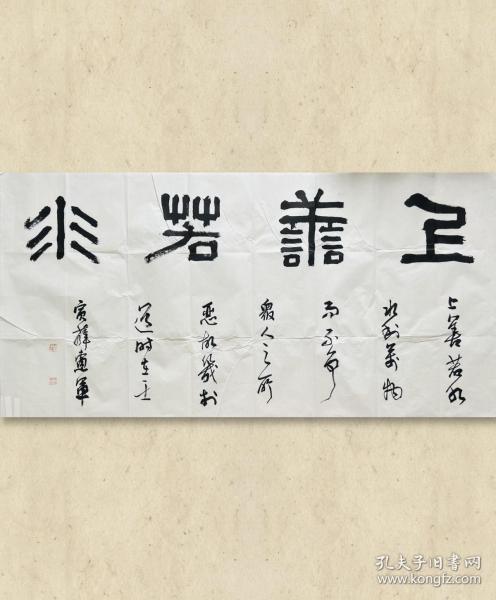 上善若水
上善若水
水利萬物
而不争
衆人之所
惡故幾於
道时在壬
寅薛軍
孔夫子旧书网
www.kongfz.com